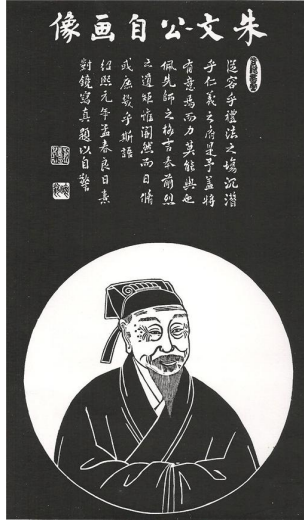 朱文公自画像
從容乎禮法之場沉潛
乎仁義之府是予蓋將
有意焉而力莫能與也
佩先師之格言奉前烈
之遺矩惟闇然而日脩
或庶幾乎斯語
紹熙元年孟春良日熹
對鏡寫真題以自警